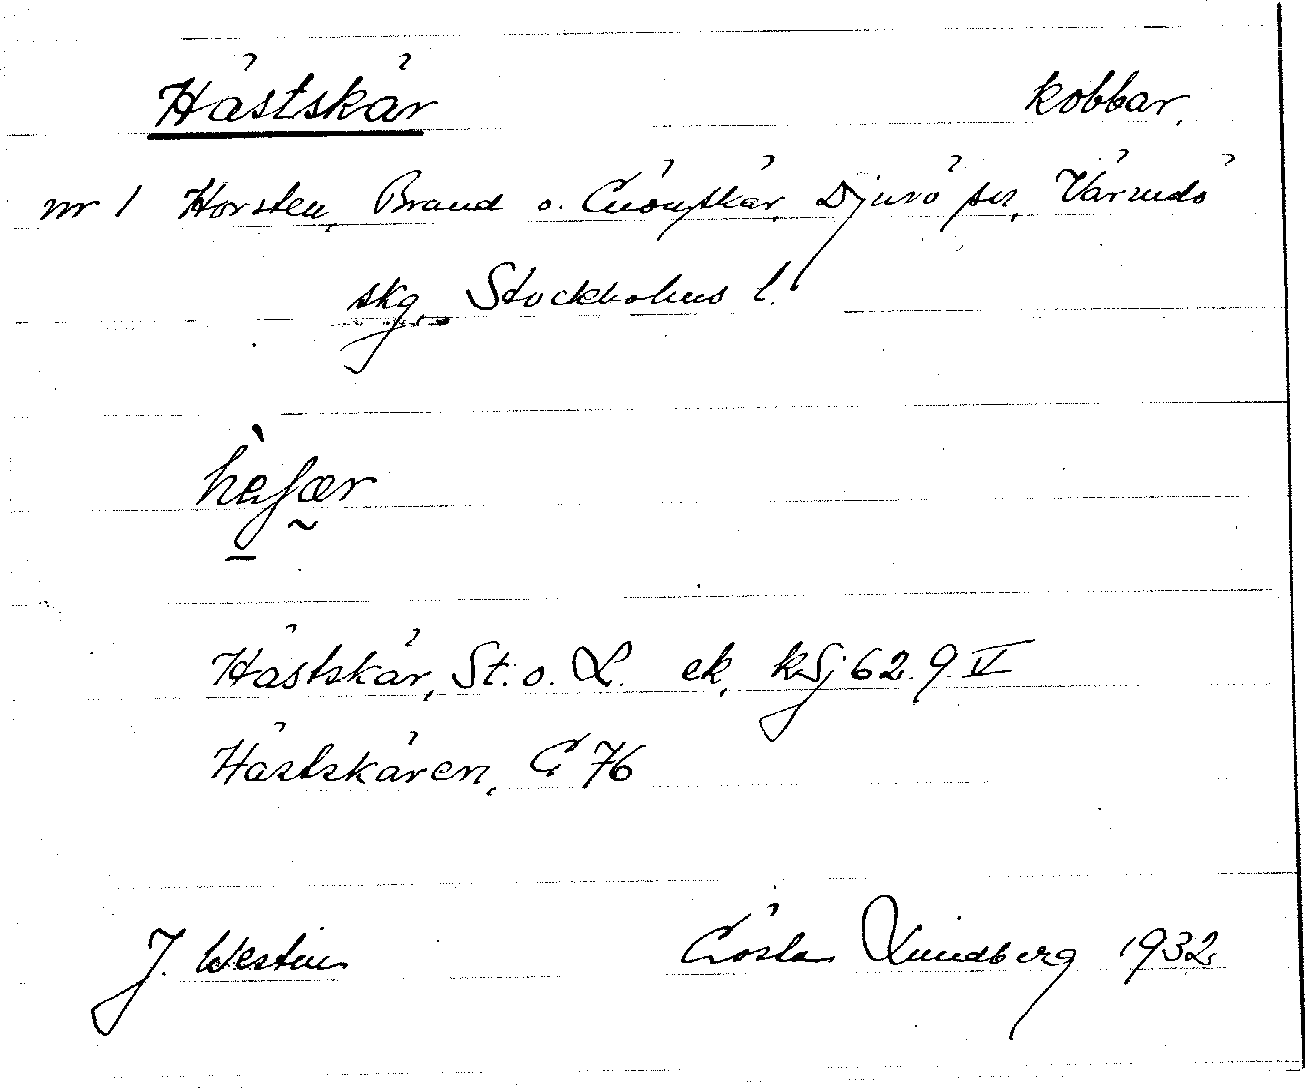 Hästskär kobbar.
nr 1 Horsten, Brand o. Grönskär, Djurö sn, Värmdö
skg. Stockholms l.
hàʃær
Hästskär, St. o. L. ek. kSj 62. 9. V
Hästskären, G 76
J. Westin Gösta Lundberg 1932